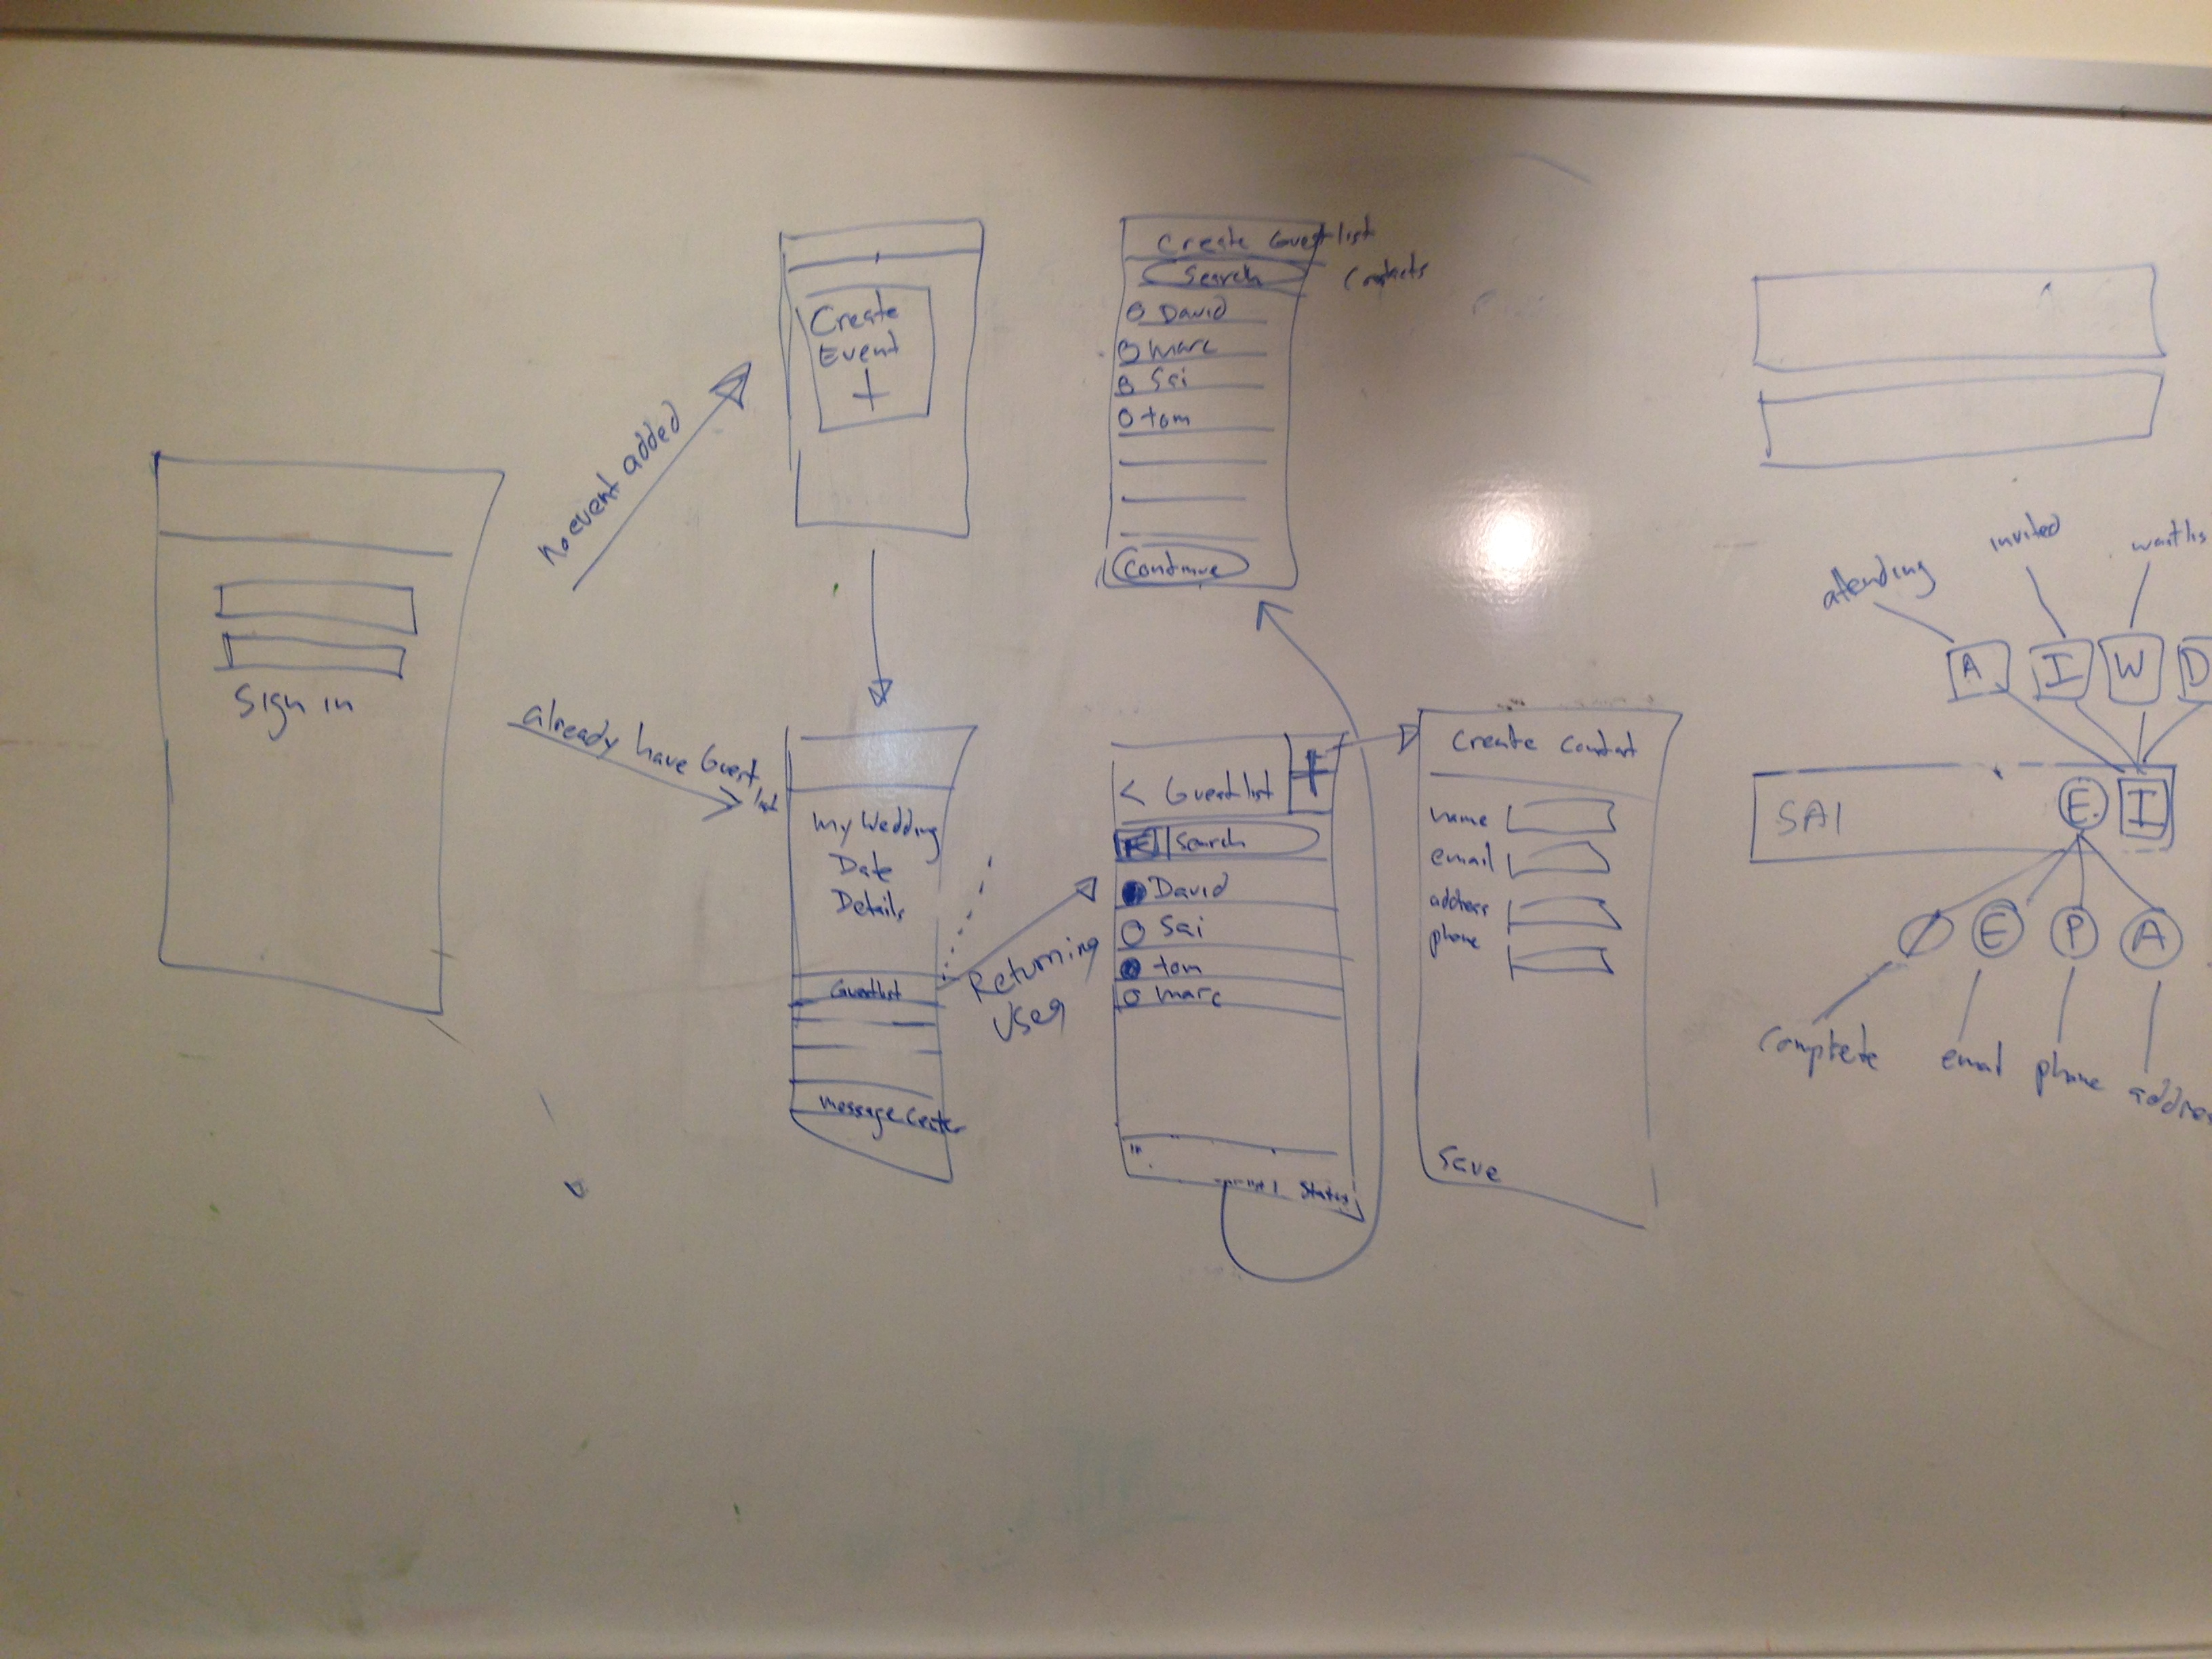 Sign in
No event added
already have Guest
list
Create
Event
+
My Wedding
Date
Details
Guestlist
message center
Returning
User
Create Guestlist
Search
Contacts
David
Marc
Sai
tom
Continue
< Guestlist +
Search
David
Sai
tom
marc
Status
Create Contact
name
email
address
phone
Save
attending
invited
waitlis
A
I
W
D
SAI
E
I
E
P
A
Complete
email
phone
addres